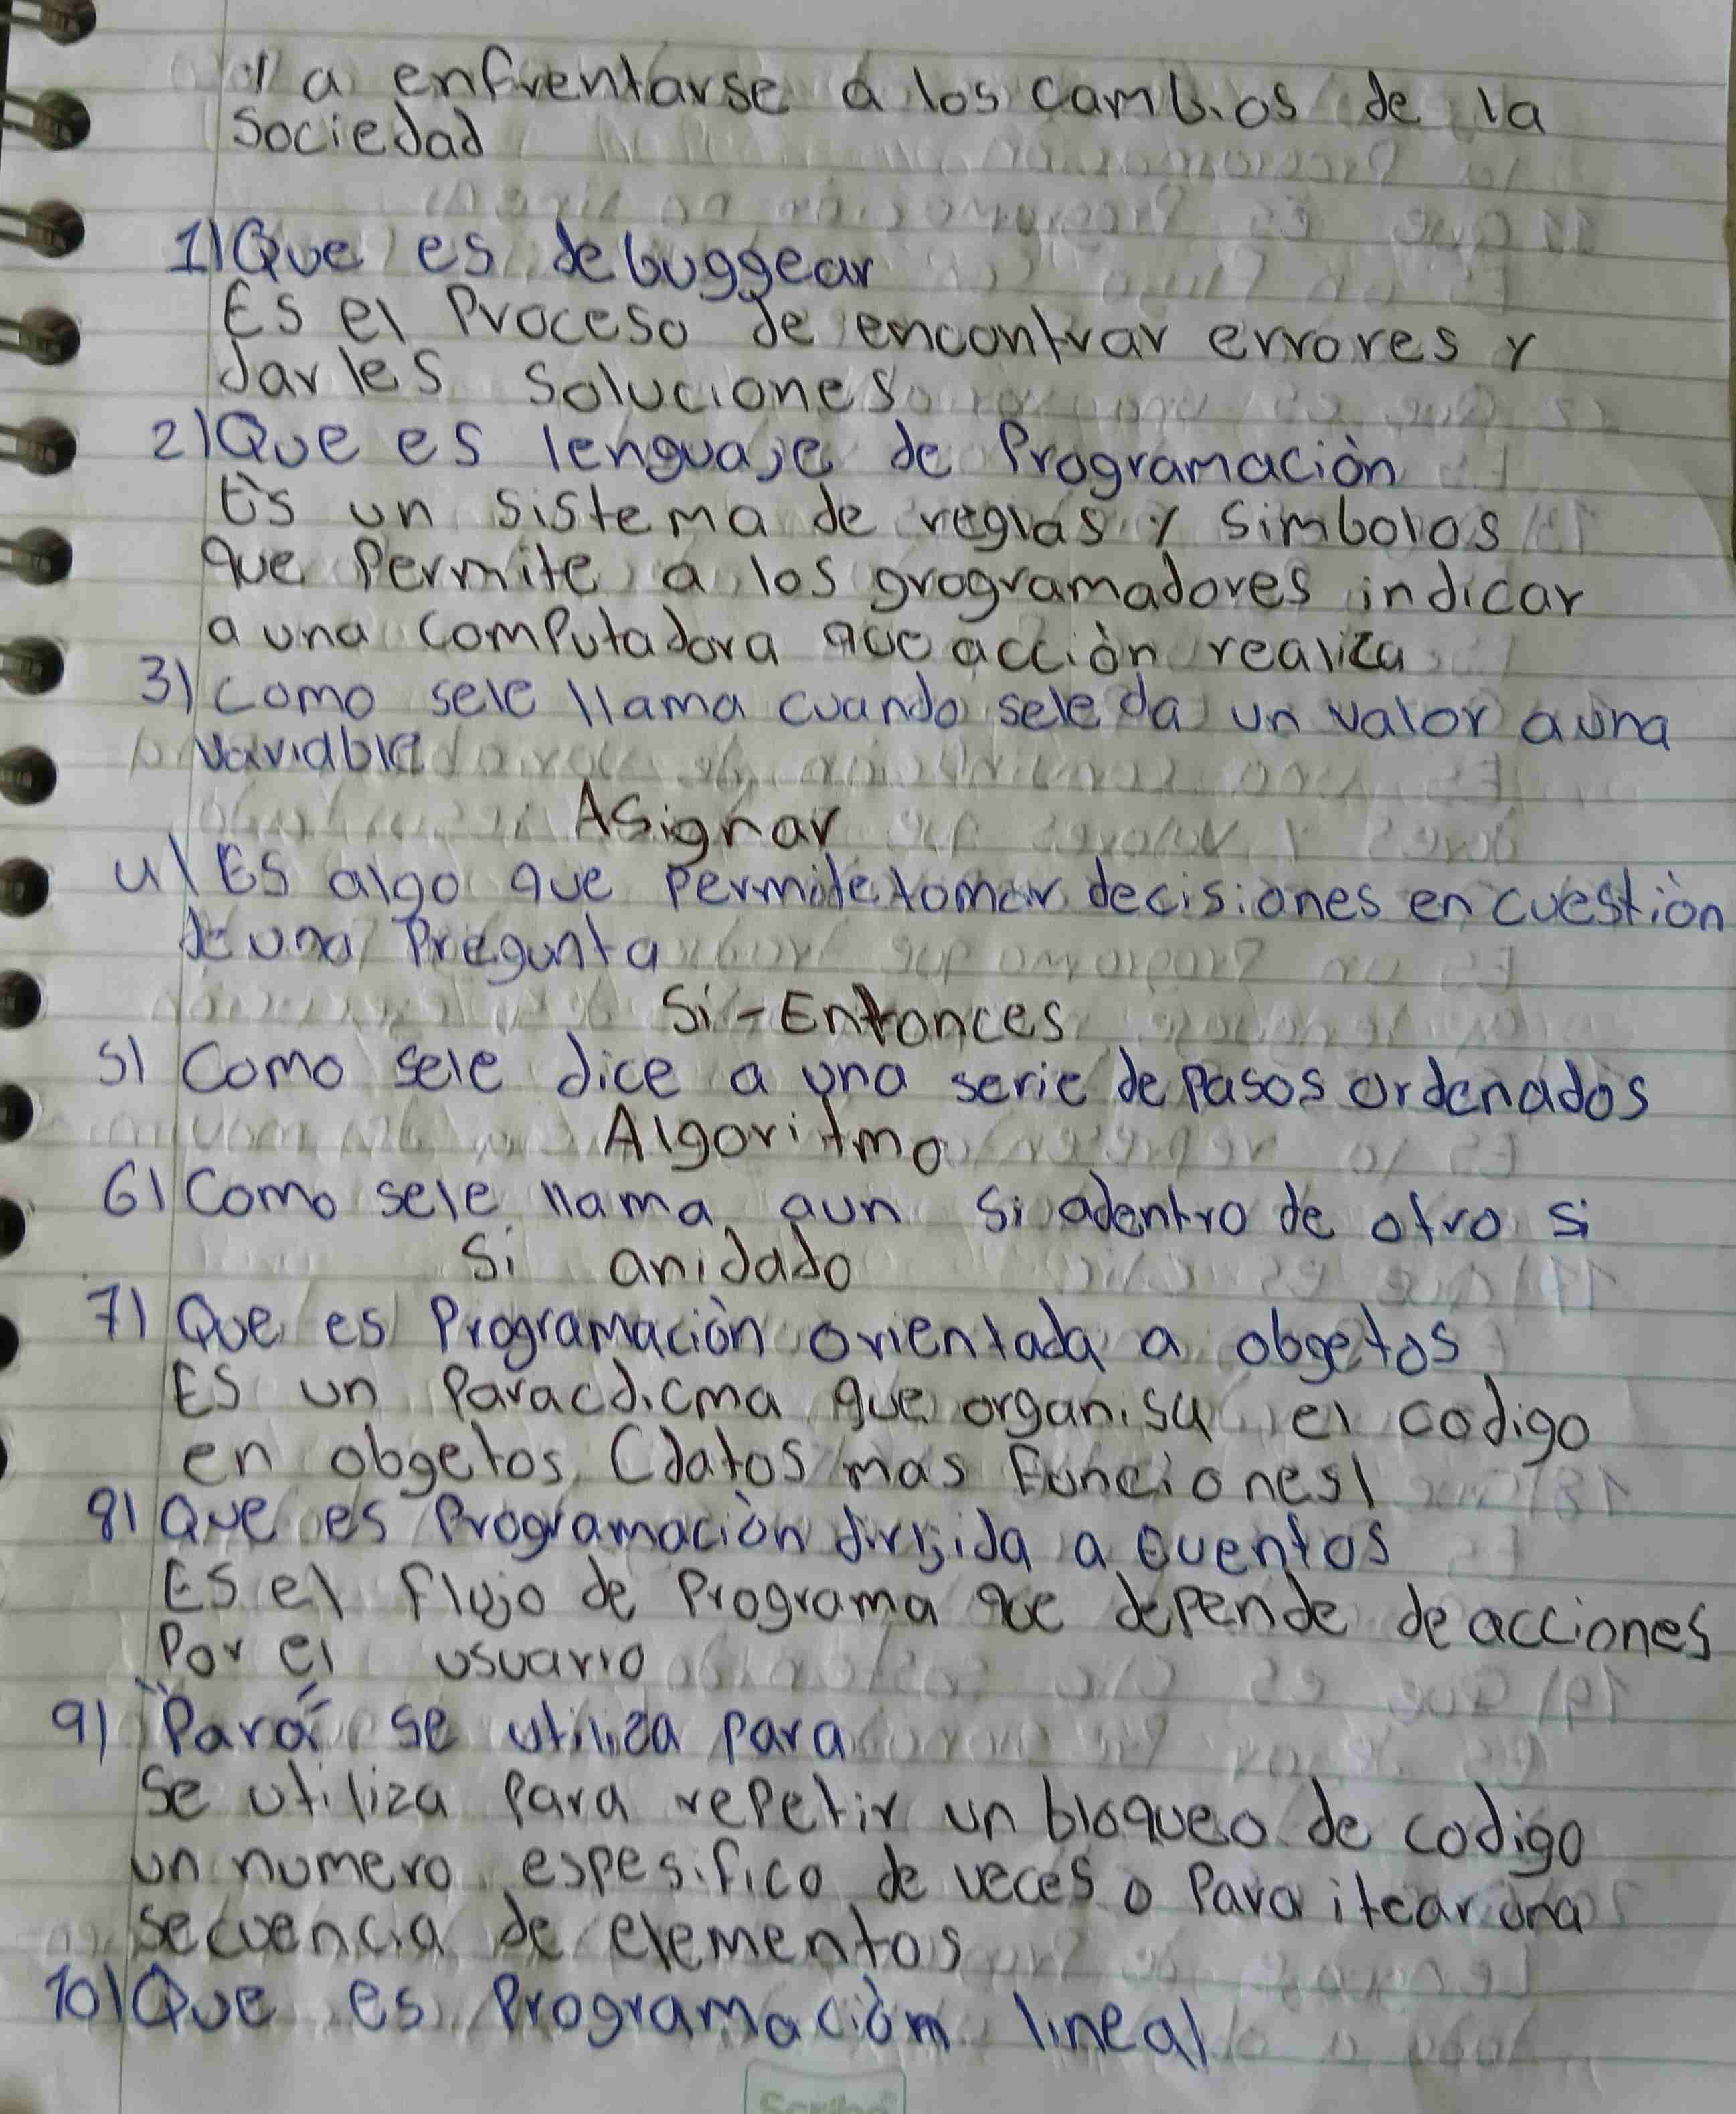 y a enfrentarse a los cambios de la
sociedad
1) Que es debuggear
Es el Proceso de encontrar errores y
darles soluciones
2) Que es lenguaje de Programaciòn
Es un sistema de reglas y simbolos
que Permite a los grogramadores indicar
a una computadora que acciòn realiza
3) Como sele llama cuando sele da un valor a una
variable
Asignar
4) Es algo que permite tomar decisiones en cuestiòn
de una Pregunta
Si-Entonces
5) Como sele dice a una serie de pasos ordenados
Algoritmo
6) Como sele llama aun si adentro de otro si
Si anidado
7) Que es Programaciòn orientada a obgetos
Es un Paracdicma que organisa el codigo
en obgetos (datos mas funciones)
8) Que es Programaciòn dirijida a eventos
Es el flujo de Programa que depende de acciones
Por el usuario
9) "Para" se utiliza para
Se utiliza Para repetir un bloqueo de codigo
un numero espesifico de veces o Para itear una
secuencia de elementos
10) Que es Programaciòn lineal
Scribe